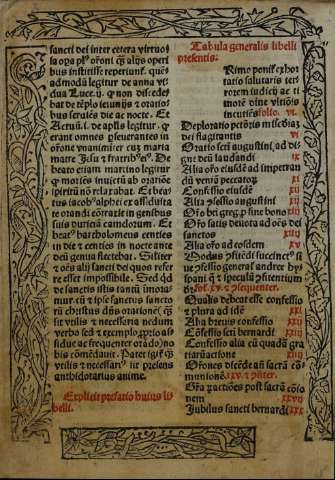 sancti dei inter cetera virtuosa
bus institisse reperiunt̉. quē
admodū legitur de anna vi
dua Luce.ij. q̄ non discede
bat de tēplo ieiunijs ⁊ oratio⸗
bus seruiēs die ac nocte. Et
Actuū.i. de apl̓is legitur. ꝙ
erant omnes p̱seuerantes in
orōne vnanimiter cuz maria
matre Jesu ⁊ fratrib⁹ei⁹. De
beato etiam martino legitur
ꝙ moriēs inuictū ab orōne
spiritū nō relaxabat. Et bea⸗
tus iacob⁹alphei ex assiduita
te orandi
suis duriciā camelorum. Et
beat⁹ bartholomeus centies
in die ⁊ centies in nocte ante
deū genua flectebat. Sil̓iter
⁊ oēs alij sancti dei quos refer
re esset impossibile. Sed qd̓
de sanctis istis tantū immora
mur. cū ⁊ ipse sanctus sancto
rū christus dn̄s oratione
sit vtilis ⁊ necessaria nedum
verbo sed ⁊ exemplo
sidue ac frequenter orādo no
bis cōmēdauit. Patet igit̉
vtilis ⁊ necessari⁹ sit presens
antidotarius anime.
Explicit prefatio huius li⸗
belli.
Tabula generalis libelli
presentis:
Rimo ponit̉ exhor
tatio salutaris ter
rorem iudicij ac ti
morē
incutiēs folio. vi.
Deploratio pctōris miseriā
dei flagitantis vi
Oratio sc̄i augustini, ad di
gne deū laudandi ix
Alia orō eiusdē ad impetran
dū veniā peccatorum xi
Confessio eiusdē xij
Alia p̱fessio augustini xij
Orō bti greg. p̱ fine bono xiij
Orō satis deuota ad oēs dei
sanctos xiij
Alia orō ad eosdem xv
Modus p̱fitēdi
ue p̱fessio generalis andree hy
spani
fo. xv. ⁊ p̱sequenter.
Qualis debeat esse confessio
⁊ plura ad idē xxi
Alia breuis confessio xxij
Cōfessio sc̄i bernardi xxij
Confessio alia cū quadā gra
tiarūactione xxiij
Orōnes dicēde añ sacrā cō⸗
munionē xxv. ⁊ p̱ñter.
Gr̄a actiōes post sacrā cōio
nem xxvij
Jubilus sancti bernardi xxx